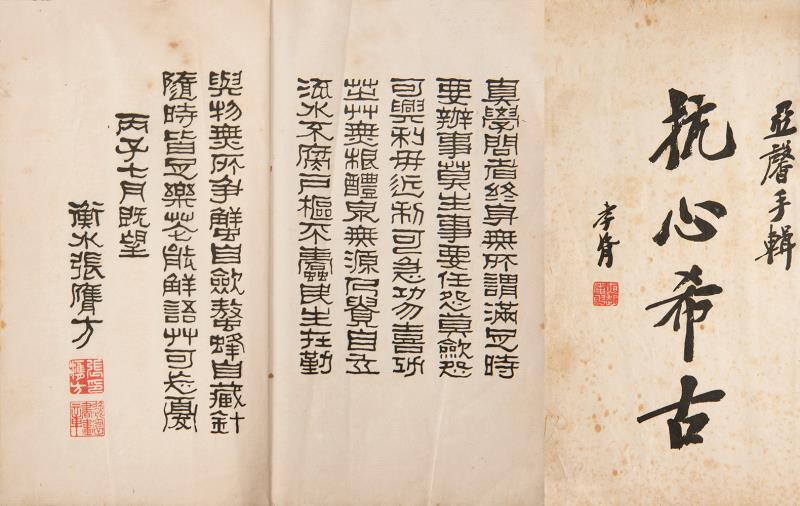 亞馨手輯
抗心希古
孝胥
真學問者終身無所謂滿足時
要辦事莫生事要任怨莫歛怨
可興利毋近利可急功勿喜功
芝艸無根醴泉無源人貴自立
流水不腐戶樞不蠹民生在勤
與物無所爭蟹自歛螯蜂自藏針
隨時皆足樂花能解語艸可忘憂
丙子七月既望
衡水張膺方